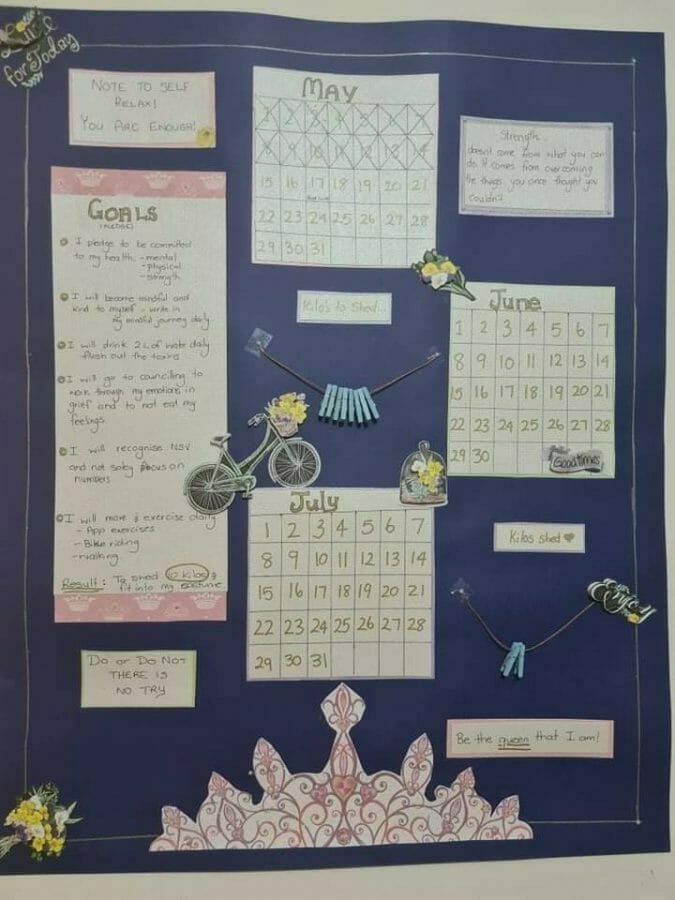 Live
for Today
NOTE TO SELF
RELAX!
YOU ARE ENOUGH!
MAY
1 2 3 4 5 6 7
8 9 10 11 12 13 14
15 16 17 18 19 20 21
22 23 24 25 26 27 28
29 30 31
Strength...
doesn't come from what you can
do. It comes from overcoming
the things you once thought you
couldn't
GOALS
(PLEDGE)
I pledge to be committed
to my health. - mental
- physical
- strength
I will become mindful and
kind to myself - write in
my mindful journey daily
I will drink 2L of water daily
flush out the toxins
I will go to councilling to
work through my emotions in
grief and to not eat my
feelings.
I will recognise NSV
and not soley focus on
numbers
I will move & exercise daily
- App exercises
- Bike riding
- Walking
Result: To shed 10 kilos &
fit into my costume
Kilo's to Shed...
June
1 2 3 4 5 6 7
8 9 10 11 12 13 14
15 16 17 18 19 20 21
22 23 24 25 26 27 28
29 30
Good times
July
1 2 3 4 5 6 7
8 9 10 11 12 13 14
15 16 17 18 19 20 21
22 23 24 25 26 27 28
29 30 31
Kilos shed ♥
Enjoy
DO OR DO NOT
THERE IS
NO TRY
Be the queen that I am!